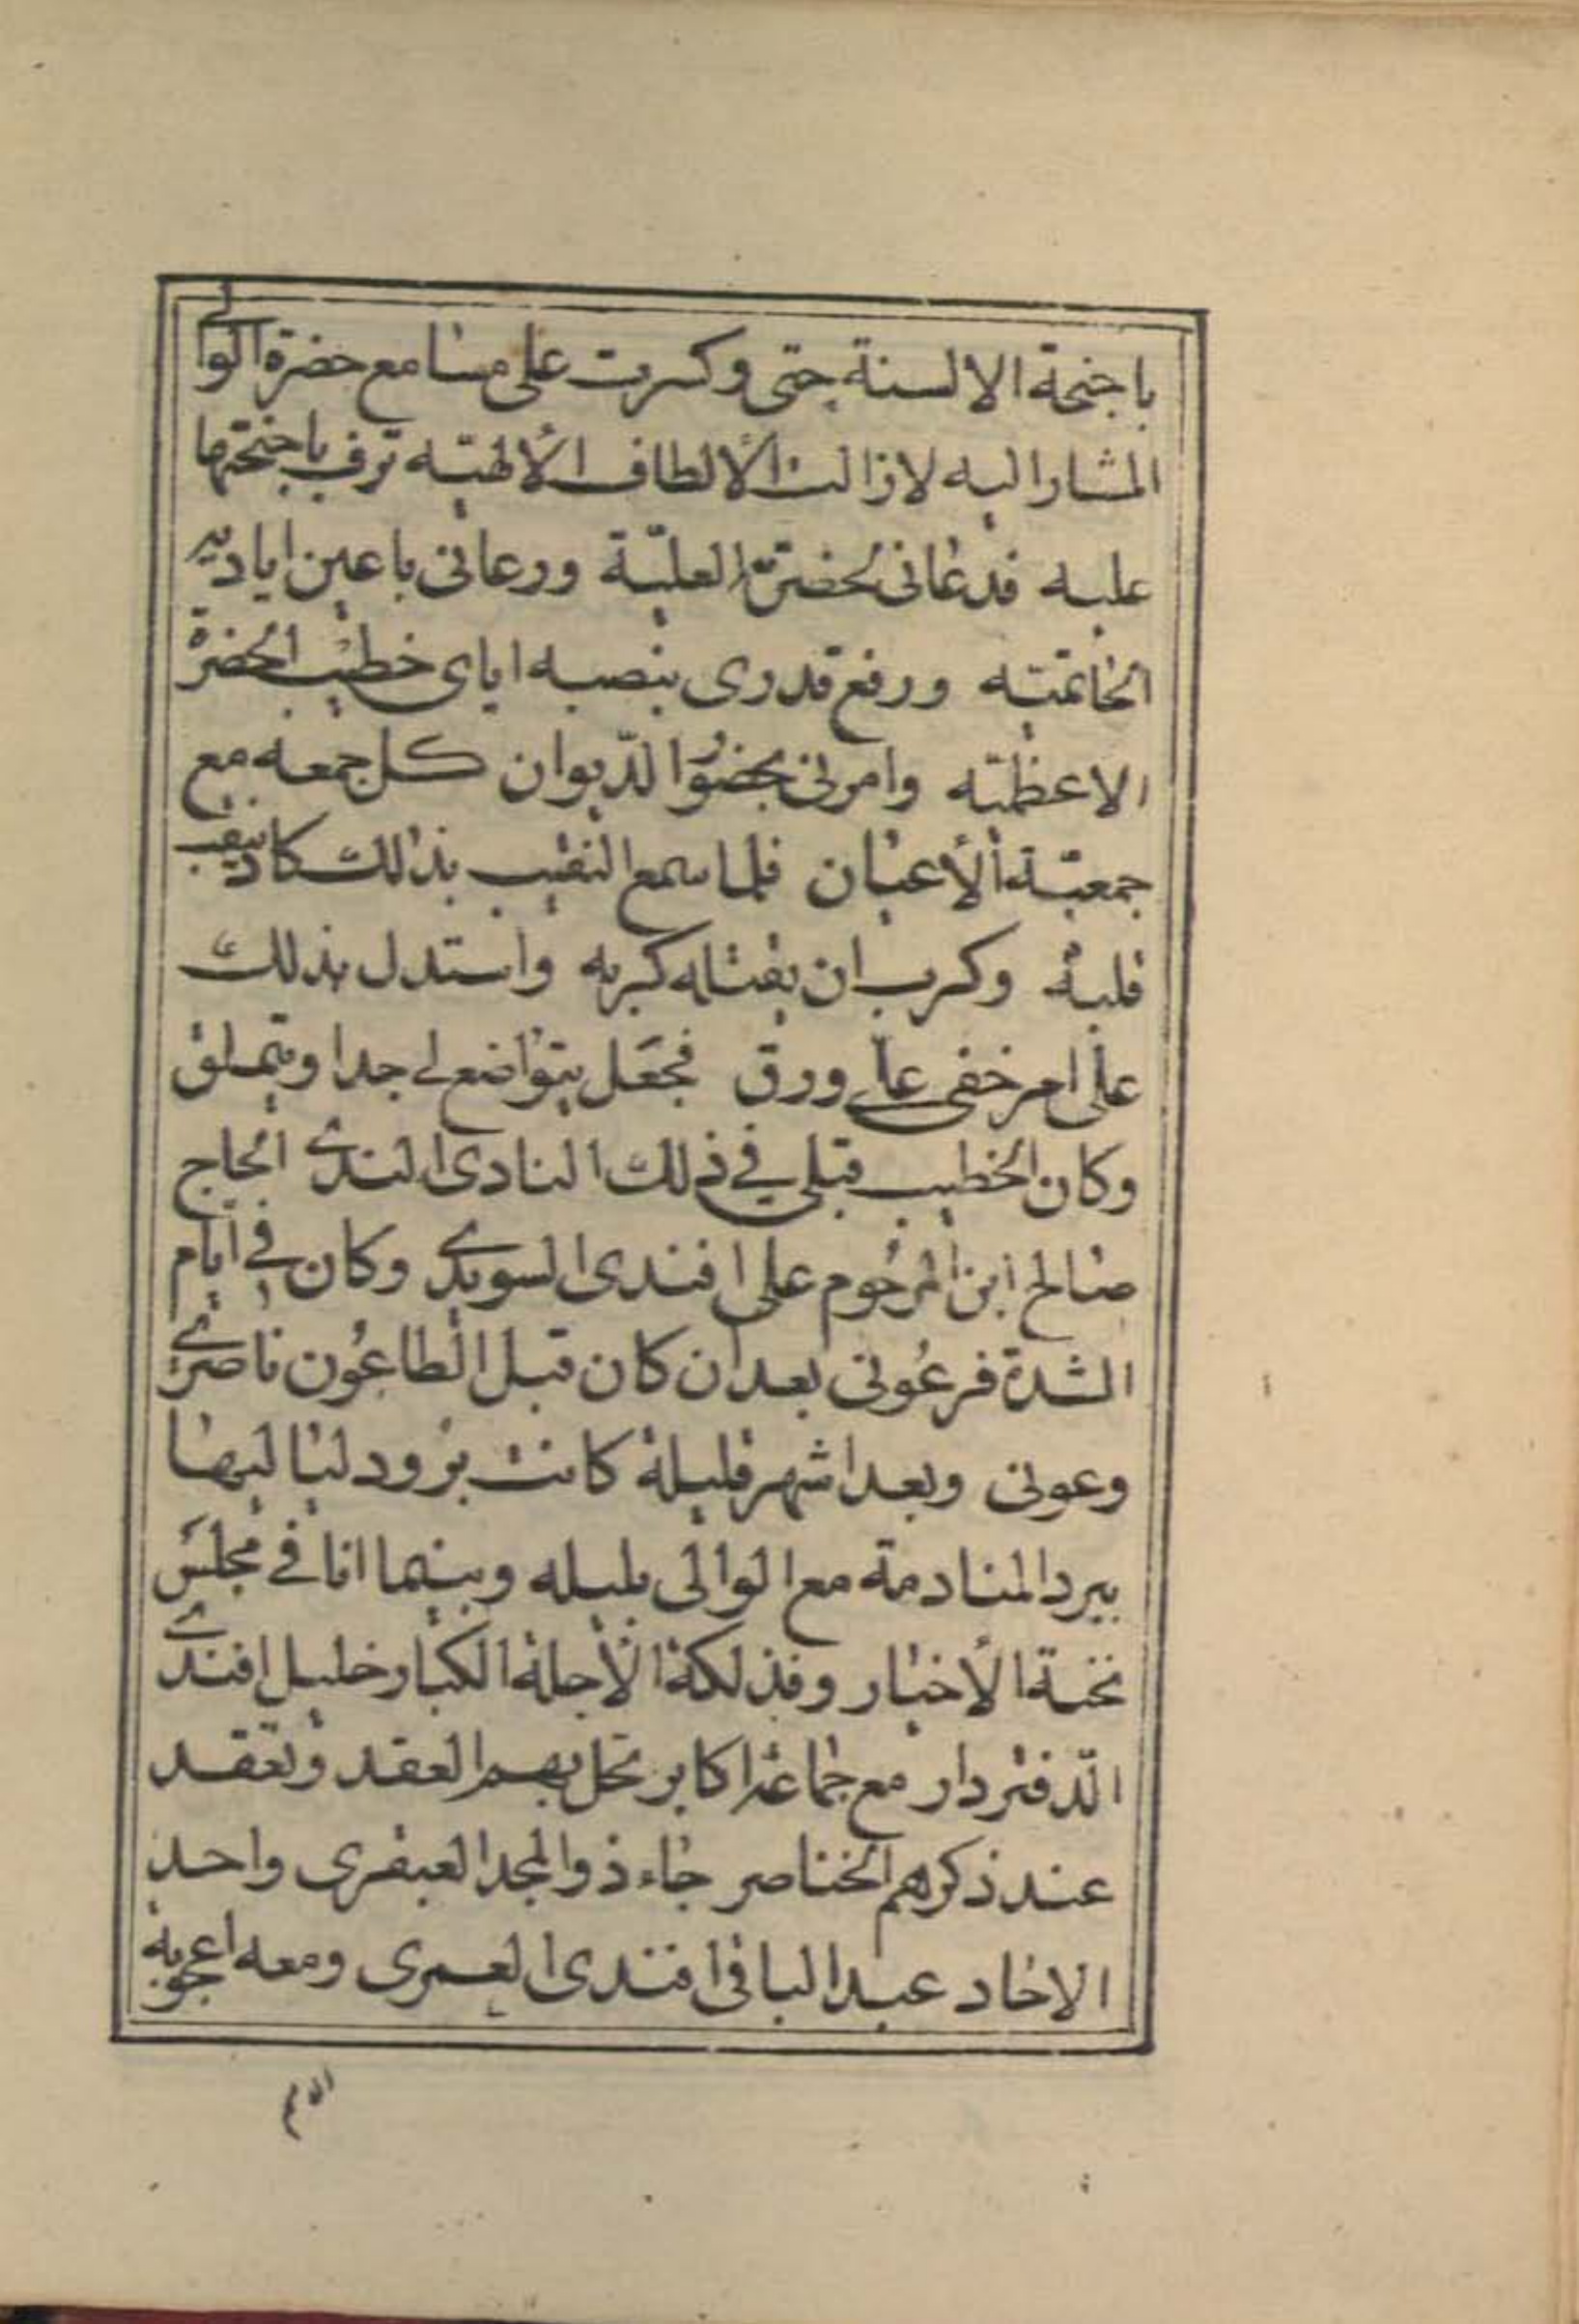 باجنحة الالسنة حتى وكرت على مسامع حضرة الوالى
المشار اليه لازالت الألطاف الألهيّه ترف باجنحتها
عليه فدعانى لحضرته العليّة ورعانى باعين اياديه
الخاتميّه ورفع قدرى بنصبه اياى خطيب الحضرة
الاعظميّه وامرنى بحضور الدّيوان كل جمعه مع
جمعيّة الأعيان فلما سمع النقيب بذلك كاد ينقب
قلبه وكرب ان يقتله كربه واستدل بذلك
على امر خفى على ورق فجعل يتواضع لى جدا ويتملق
وكان الخطيب قبلى فى ذلك النادى الندى الحاج
صالح ابن المرحوم على افندى السويدى وكان فى ايام
الشدة فرعونى بعد ان كان قبل الطاعون ناصرى
وعونى وبعد اشهر قليلة كانت برود لياليها
ببرد المنادمة مع الوالى بليله وبينما انا فى مجلس
نخبة الأخيار وفذلكة الأجلة الكبار خليل افندى
الدّفتردار مع جماعة اكابر تحل بهم العقد وتعقد
عند ذكرهم الخناصر جاء ذو المجد العبقرى واحد
الاحاد عبد الباقى افندى العمرى ومعه اعجوبة